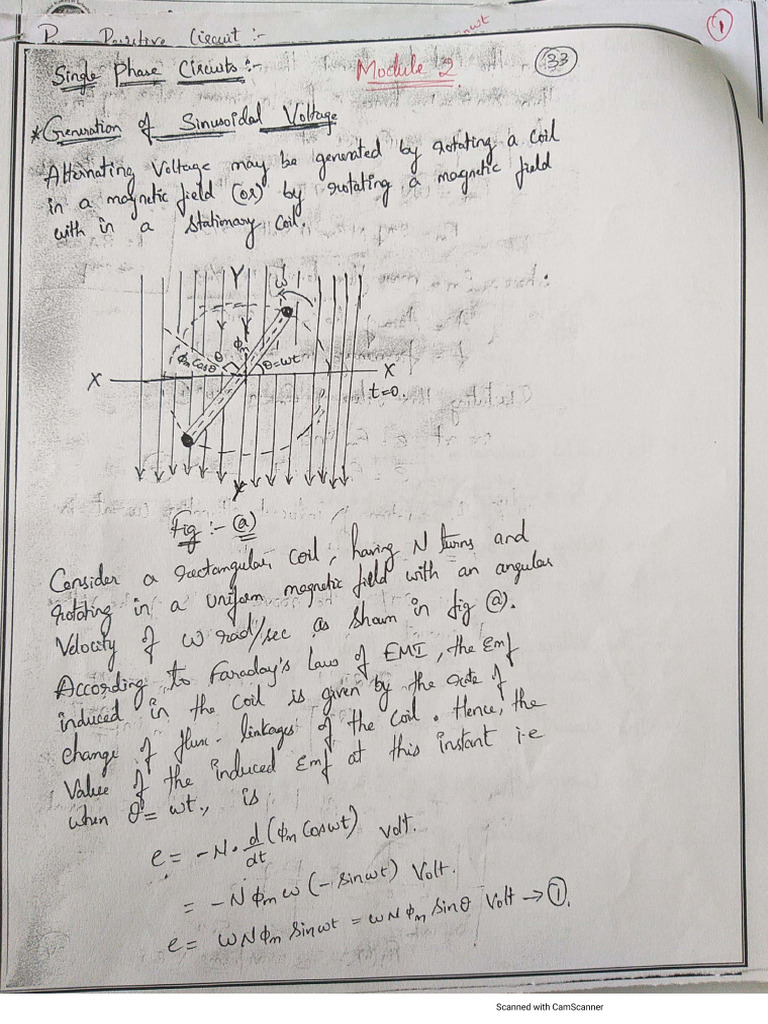 Circuit :-
①
Single Phase Circuits :-
Module 2.
33
* Generation of Sinusoidal Voltage
Alternating Voltage may be generated by rotating a coil
in a magnetic field (or) by rotating a magnetic field
with in a stationary coil.
Y
ω
ϕm
ϕm cosθ
θ
θ=ωt
X
X
t=0.
Y
Fig :- ⓐ
Consider a rectangular coil, having N turns and
rotating in a uniform magnetic field with an angular
Velocity of ω rad/sec as shown in fig ⓐ.
According to Faraday's Laws of EMI, the Emf
induced in the coil is given by the rate of
change of flux-linkages of the coil. Hence, the
Value of the induced Emf at this instant i.e
when θ= ωt, is
e = -N . d/dt (ϕm Cosωt) volt.
= -Nϕm ω (-sinωt) Volt.
e = ωNϕm sinωt = ωNϕm sinθ Volt → ①.
Scanned with CamScanner